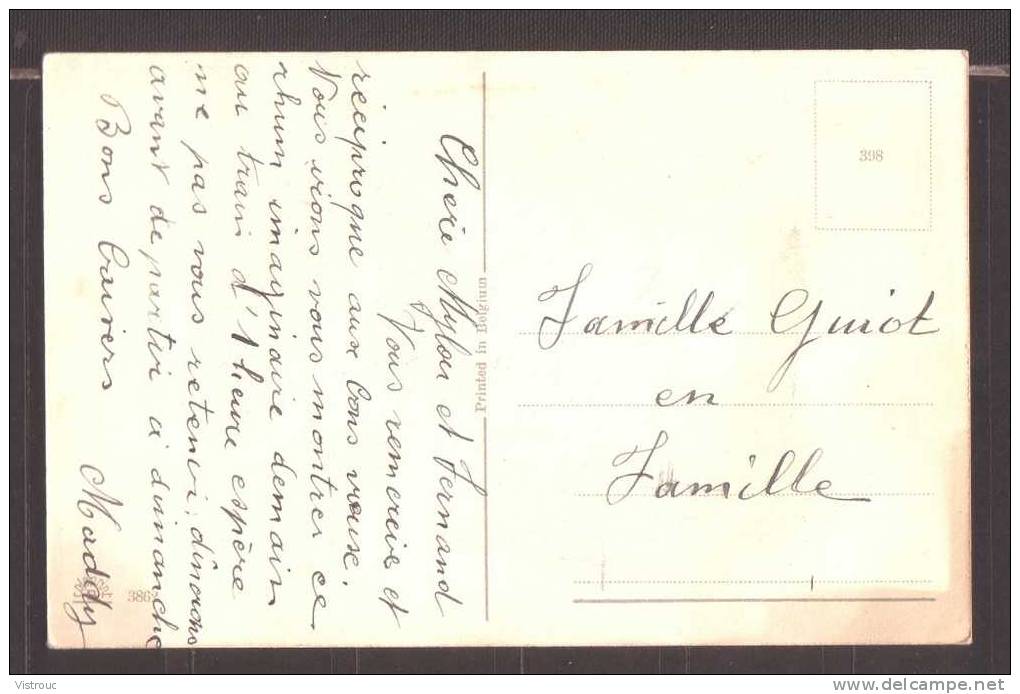 Chère Mylou et Fernand
Vous remercie et
réciproque aux bons vœux.
Vous irons vous montrer ce
rhum imaginaire demain
au train d'1 heure espère
ne pas vous retenir, dînons
avant de partir à dimanche
Bons baisers
Maddy
386
Printed in Belgium
398
Famille Guiot
en
Famille
© Vistrouc
http://www.delcampe.net